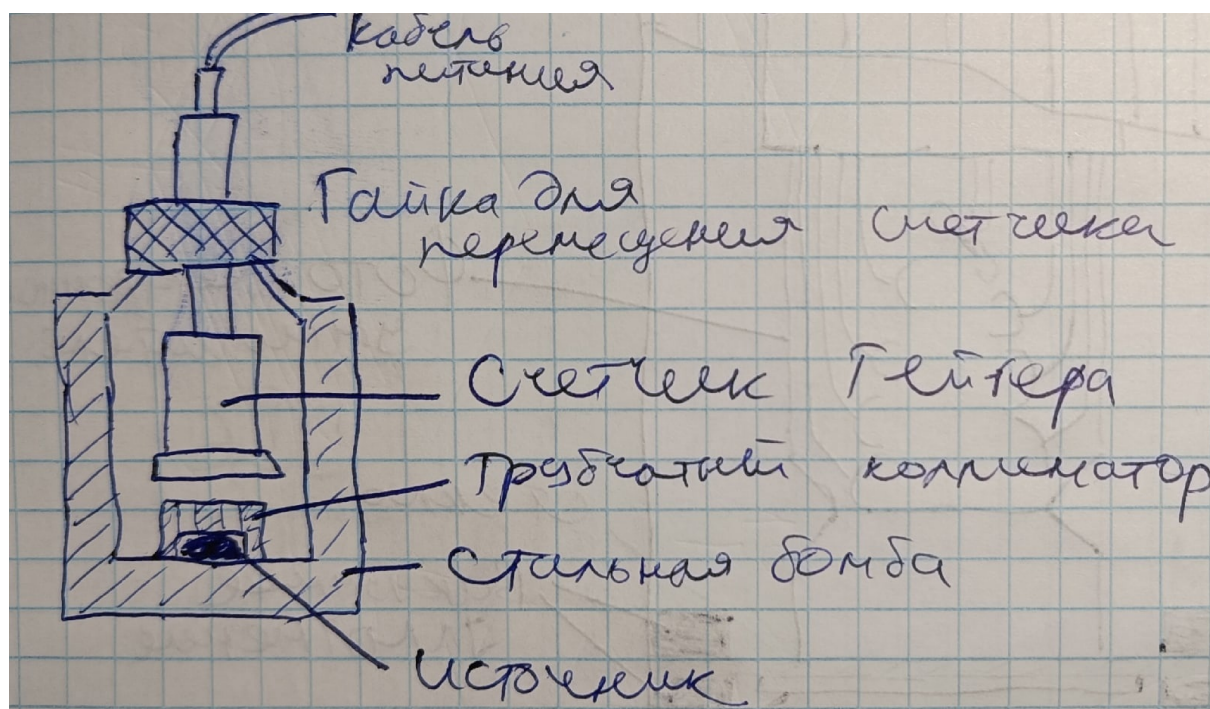 Кабель
питания
Гайка для
перемещения счетчика
Счетчик Гейгера
Трубчатый коллиматор
Стальная бомба
Источник